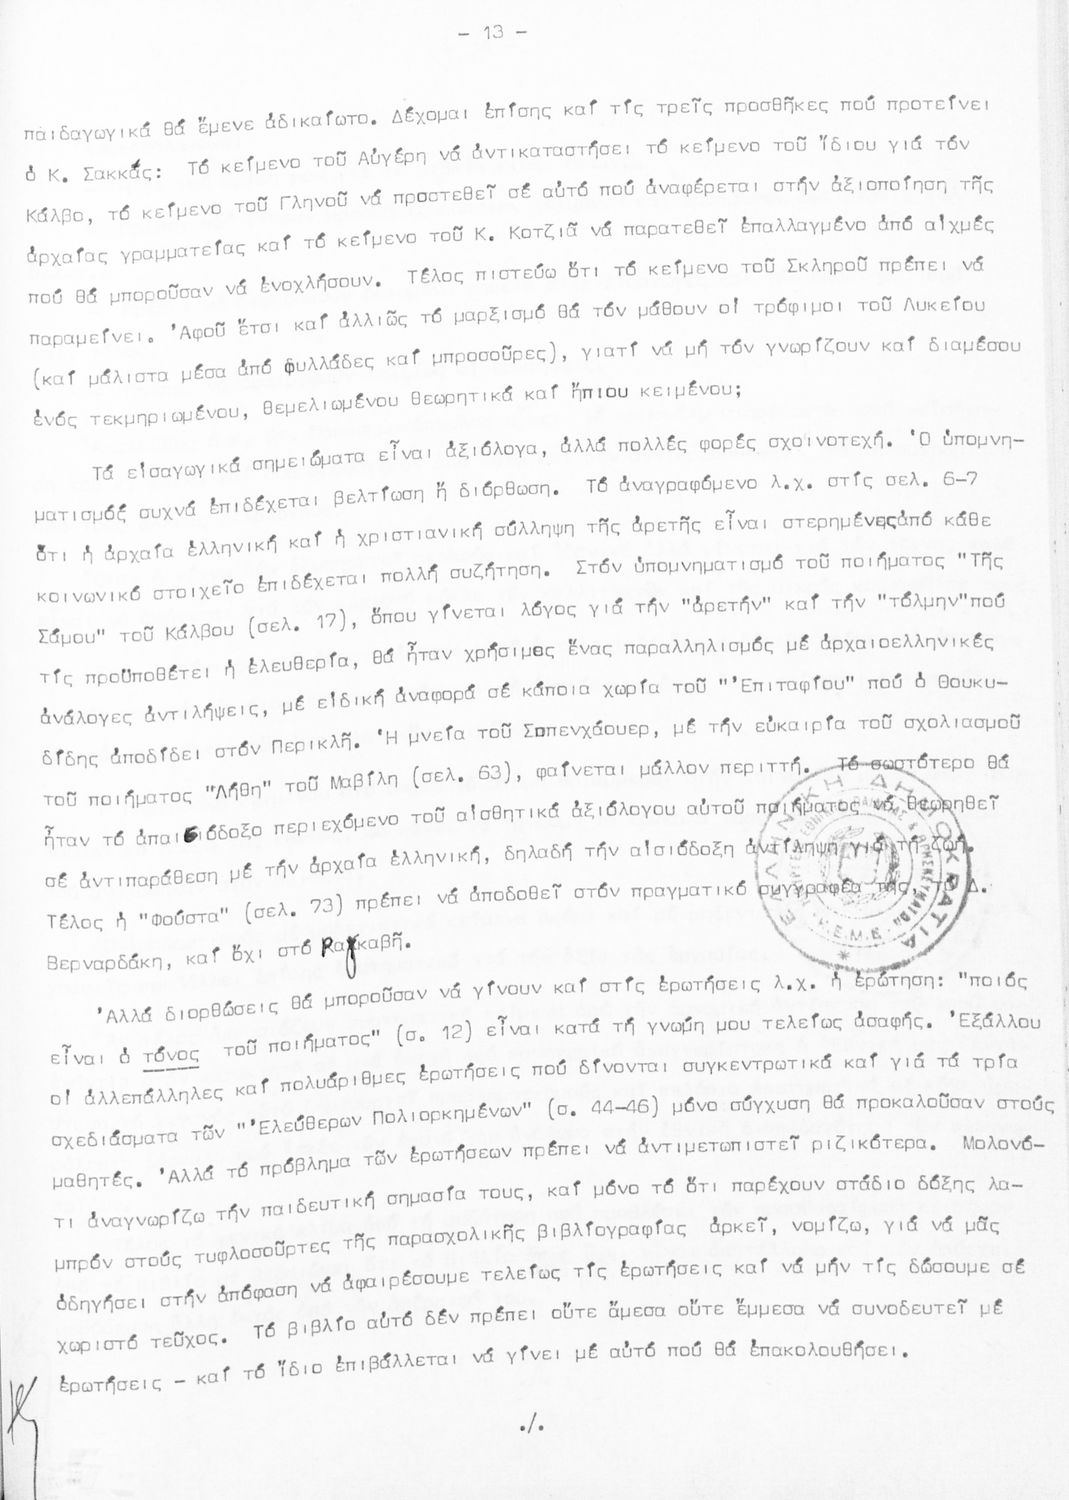 - 13 -
παιδαγωγικά θά ἔμενε ἀδικαίωτο. Δέχομαι ἐπίσης καί τίς τρεῖς προσθῆκες πού προτείνει
ὁ Κ. Σακκάς: Τό κείμενο τοῦ Αὐγέρη νά ἀντικαταστήσει τό κείμενο τοῦ ἴδιου γιά τόν
Κάλβο, τό κείμενο τοῦ Γληνοῦ νά προστεθεῖ σέ αὐτό πού ἀναφέρεται στήν ἀξιοποίηση τῆς
ἀρχαίας γραμματείας καί τό κείμενο τοῦ Κ. Κοτζιᾶ νά παρατεθεῖ ἐπαλλαγμένο ἀπό αἰχμές
πού θά μποροῦσαν νά ἐνοχλήσουν. Τέλος πιστεύω ὅτι τό κείμενο τοῦ Σκληροῦ πρέπει νά
παραμείνει. Ἀφοῦ ἔτσι καί ἀλλιῶς τό μαρξισμό θά τόν μάθουν οἱ τρόφιμοι τοῦ Λυκείου
(καί μάλιστα μέσα ἀπό φυλλάδες καί μπροσοῦρες), γιατί νά μή τόν γνωρίζουν καί διαμέσου
ἑνός τεκμηριωμένου, θεμελιωμένου θεωρητικά καί ἤπιου κειμένου;
Τά εἰσαγωγικά σημειώματα εἶναι ἀξιόλογα, ἀλλά πολλές φορές σχοινοτεχή. Ὁ ὑπομνη-
ματισμόξ συχνά ἐπιδέχεται βελτίωση ἤ διόρθωση. Τό ἀναγραφόμενο λ.χ. στίς σελ. 6-7
ὅτι ἡ ἀρχαία ἑλληνική καί ἡ χριστιανική σύλληψη τῆς ἀρετῆς εἶναι στερημένεςἀπό κάθε
κοινωνικό στοιχεῖο ἐπιδέχεται πολλή συζήτηση. Στόν ὑπομνηματισμό τοῦ ποιήματος "Τῆς
Σάμου" τοῦ Κάλβου (σελ. 17), ὅπου γίνεται λόγος γιά τήν "ἀρετήν" καί τήν "τόλμην"πού
τίς προϋποθέτει ἡ ἐλευθερία, θά ἦταν χρήσιμος ἕνας παραλληλισμός μέ ἀρχαιοελληνικές
ἀνάλογες ἀντιλήψεις, μέ εἰδική ἀναφορά σέ κάποια χωρία τοῦ "Ἐπιταφίου" πού ὁ Θουκυ-
δίδης ἀποδίδει στόν Περικλῆ. Ἡ μνεία τοῦ Σοπενχάουερ, μέ τήν εὐκαιρία τοῦ σχολιασμοῦ
τοῦ ποιήματος "Λήθη" τοῦ Μαβίλη (σελ. 63), φαίνεται μάλλον περιττή. Τό σωστότερο θά
ἦταν τό ἀπαισιόδοξο περιεχόμενο τοῦ αἰσθητικά ἀξιόλογου αὐτοῦ ποιήματος νά θεωρηθεῖ
σέ ἀντιπαράθεση μέ τήν ἀρχαία ἑλληνική, δηλαδή τήν αἰσιόδοξη ἀντίληψη γιά τή ζωή.
Τέλος ἡ "Φούστα" (σελ. 73) πρέπει νά ἀποδοθεῖ στόν πραγματικό συγγραφέα της, τό Δ.
Βερναρδάκη, καί ὄχι στό Ραγκαβῆ.
ΕΛΛΗΝΙΚΗ ΔΗΜΟΚΡΑΤΙΑ
Κ.Ε.Μ.Ε.
Ἀλλά διορθώσεις θά μποροῦσαν νά γίνουν καί στίς ἐρωτήσεις λ.χ. ἡ ἐρώτηση: "ποιός
εἶναι ὁ τόνος τοῦ ποιήματος" (σ. 12) εἶναι κατά τή γνώμη μου τελείως ἀσαφής. Ἐξάλλου
οἱ ἀλλεπάλληλες καί πολυάριθμες ἐρωτήσεις πού δίνονται συγκεντρωτικά καί γιά τά τρία
σχεδιάσματα τῶν "Ἐλεύθερων Πολιορκημένων" (σ. 44-46) μόνο σύγχυση θά προκαλοῦσαν στούς
μαθητές. Ἀλλά τό πρόβλημα τῶν ἐρωτήσεων πρέπει νά ἀντιμετωπιστεῖ ριζικότερα. Μολονό-
τι ἀναγνωρίζω τήν παιδευτική σημασία τους, καί μόνο τό ὅτι παρέχουν στάδιο δόξης λα-
μπρόν στούς τυφλοσοῦρτες τῆς παρασχολικῆς βιβλίογραφίας ἀρκεῖ, νομίζω, γιά νά μᾶς
ὁδηγήσει στήν ἀπόφαση νά ἀφαιρέσουμε τελείως τίς ἐρωτήσεις καί νά μήν τίς δώσουμε σέ
χωριστό τεῦχος. Τό βιβλίο αὐτό δέν πρέπει οὔτε ἄμεσα οὔτε ἔμμεσα νά συνοδευτεῖ μέ
ἐρωτήσεις - καί τό ἴδιο ἐπιβάλλεται νά γίνει μέ αὐτό πού θά ἐπακολουθήσει.
./.